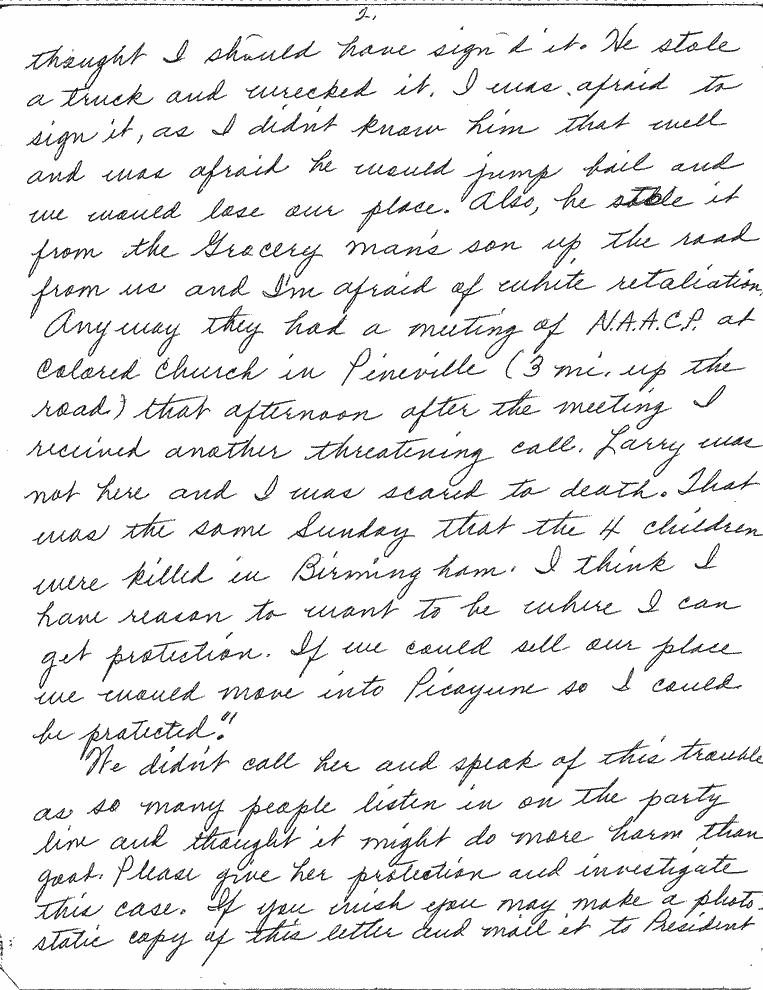 2.
thought I should have sign'd it. He stole
a truck and wrecked it. I was afraid to
sign it, as I didn't know him that well
and was afraid he would jump bail and
we would lose our place. Also, he stole it
from the Grocery man's son up the road
from us and I'm afraid of white retaliation.
Anyway they had a meeting of N.A.A.C.P. at
Colored Church in Pineville (3 mi. up the
road) that afternoon after the meeting I
received another threatening call. Larry was
not here and I was scared to death. That
was the same Sunday that the 4 children
were killed in Birmingham. I think I
have reason to want to be where I can
get protection. If we could sell our place
we would move into Picayune so I could
be protected."
We didn't call her and speak of this trouble
as so many people listen in on the party
line and thought it might do more harm than
good. Please give her protection and investigate
this case. If you wish you may make a photo-
static copy of this letter and mail it to President